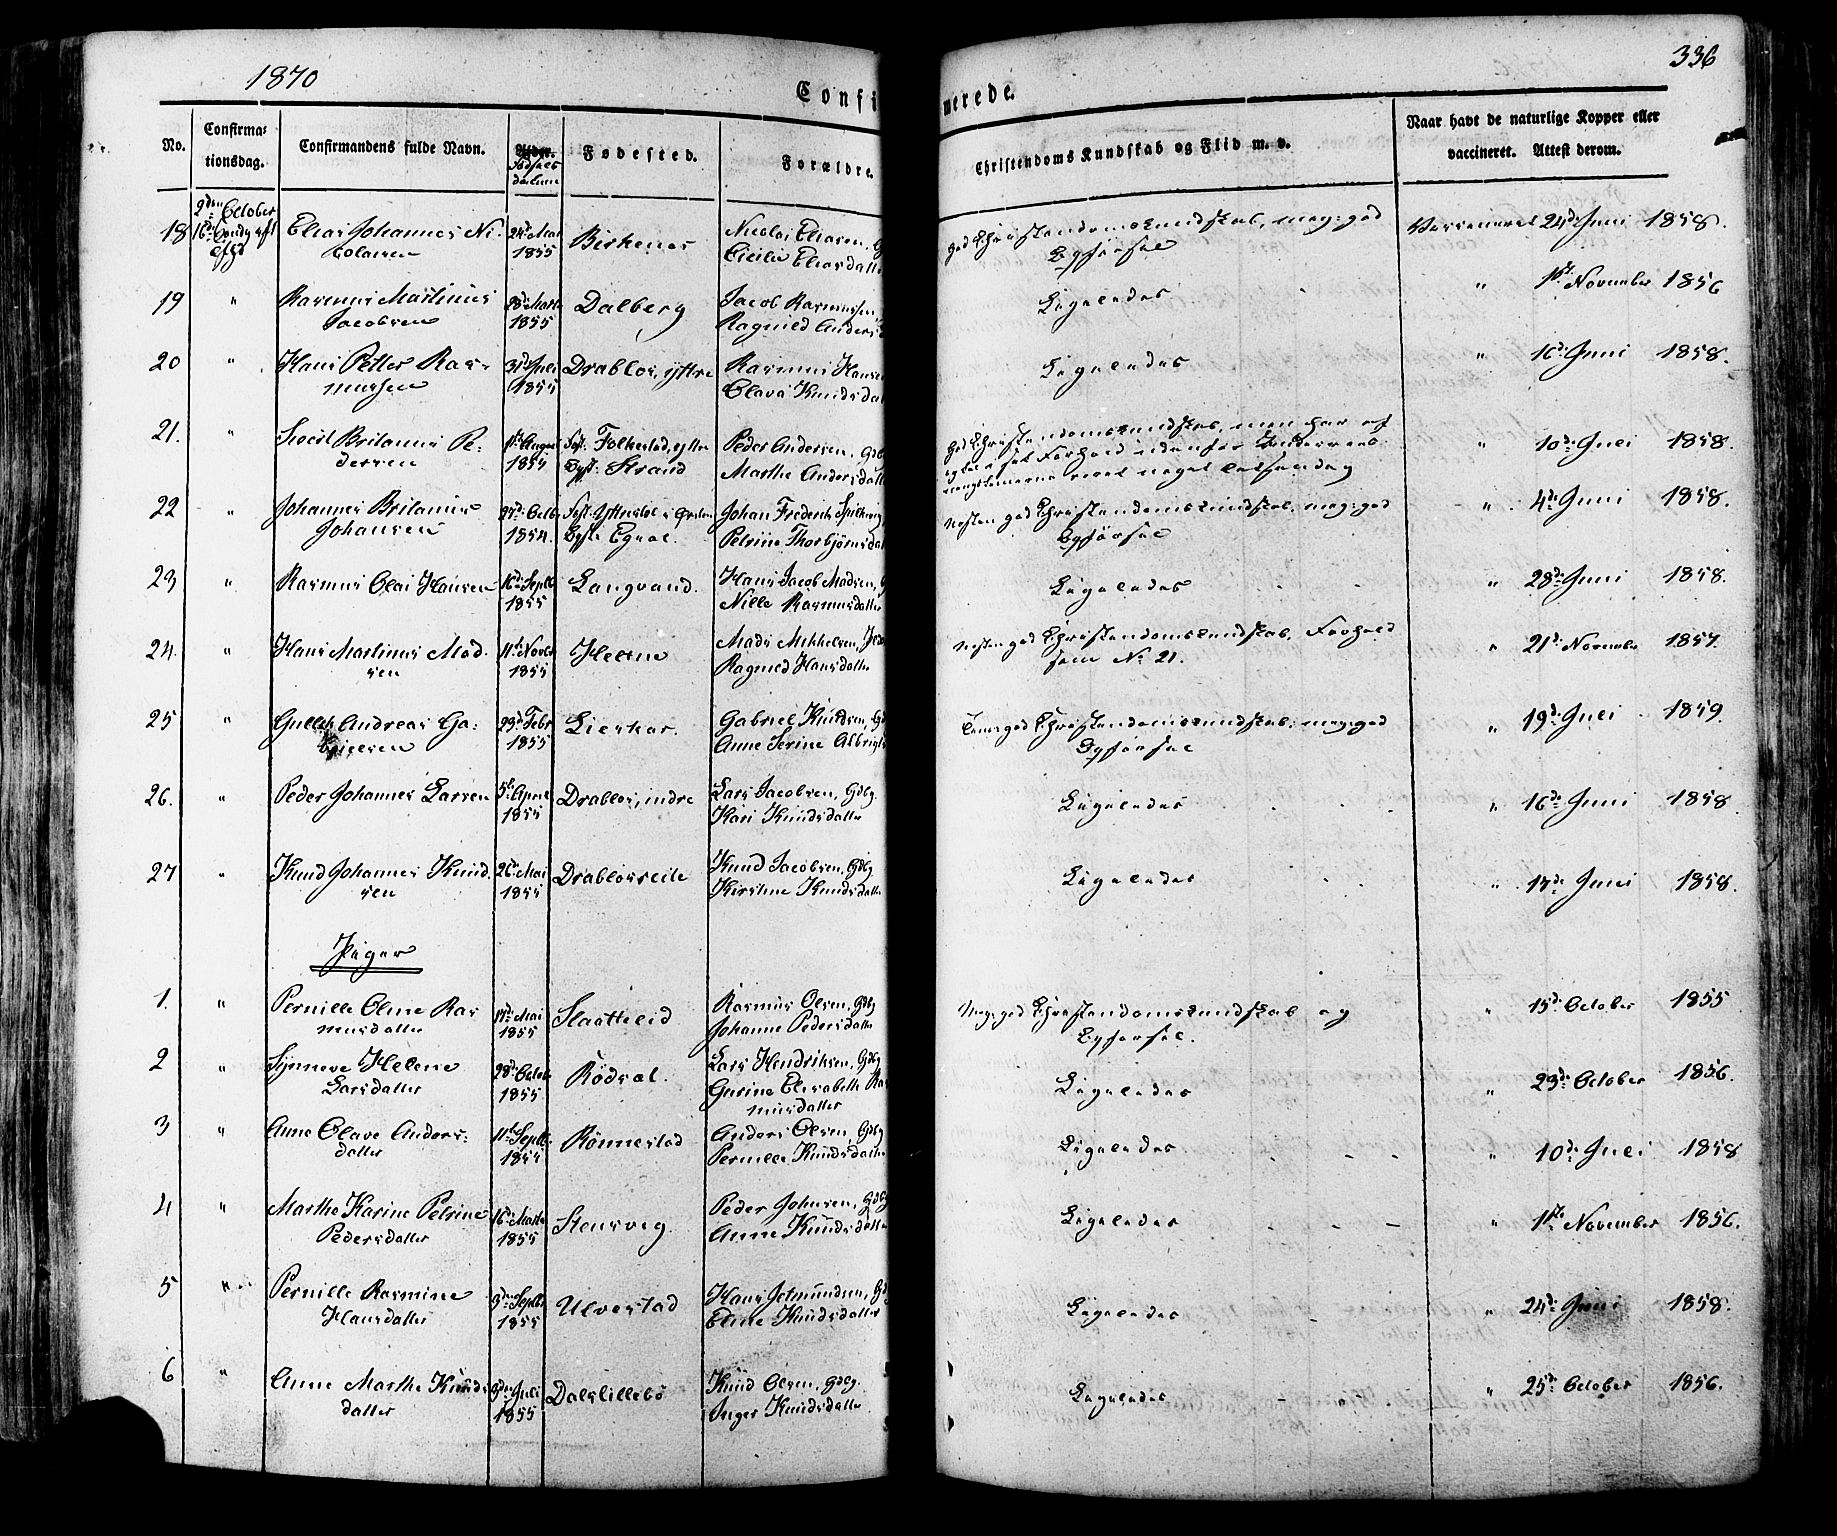 1870
336
Confi
merede.
No.
Confirma-
tionsdag.
Confirmandens fulde Navn.
Alder.
Fødsels
datum
Fødested.
Forældre.
Christendoms Kundskab og Flid m. v.
Naar havt de naturlige Kopper eller
vaccineret. Attest derom.
18
2den October
16de Søndag
Elias Johannes Ni-
colaisen
24de Mai
1855
Birkenes
Nicolai Eliasen, G
Cicilie Eliasdatte
god Christendomskundskab, meg: god
Opførsel
Vaccineret 24de Juni 1858.
19 "
Rasmus Martinus
Jacobsen
28de Marts
1855
Dalberg
Jacob Rasmussen,
Ragnild Anders
Ligeledes
" 1ste November 1856
20 "
Hans Petter Ras-
mussen
31te Juli
1855
Drabløs, yttre
Rasmus Hansen
Olava Knudsdat
Ligeledes
" 16de Juni 1858.
21. "
Sivert Britanus Pe-
dersen
11te August
1854
Føst. Folkestad, yttre
Opf. Strand
Peder Andersen, Gdbg
Marthe Andersdatt
god Christendomskundskab, men har af
Forhold udenfor Undervis-
ningstimerne været noget
" 10de Juli 1858.
22 "
Johannes Britanus
Johansen
27de Octbr
1854.
Føst. Yttrestøl i Ørsten
Opf. Egnal.
Johan Frederik
Petrine Thorbjørnsdat
Næsten god Christendomskundskab, meg: god
Opførsel
" 4de Juni 1858.
23 "
Rasmus Olai Hansen
16de Septb
1855
Langvand.
Hans Jacob Madsen, G
Nille Rasmusdatter
Ligeledes
" 28de Juni 1858.
24. "
Hans Martinus Mad-
sen
11te Novbr
1855
Heltne
Mads Mikkelsen,
Ragnild Hansdatter
Næsten god Christendomskundskab. Forhold
som No 21.
" 21de November 1857.
25 "
Gullik Andreas Ga-
brielsen
23de Febr
1855
Lierhas.
Gabriel Knudsen, Gdb
Anne Serine Albrigts
god Christendomskundskab; meg: god
Opførsel
" 19de Juli 1859.
26. "
Peder Johannes Larsen
5te April
1855
Drabløs, indre
Lars Jacobsen, Gdbg.
Kari Knudsdatter
Ligeledes
" 16de Juni 1858
27 "
Knud Johannes Knud-
sen
26de Mai
1855
Drabløsreite
Knud Jacobsen, Gdbg
Kirstine Knudsdatter
Ligeledes
" 17de Juli 1858.
Piger
1. "
Pernille Oline Ras
musdatter
17de Mai
1855
Slaattelid
Rasmus Olsen, Gdbg
Johanne Pedersdatter
Meg: god Christendomskundskab og
Opførsel.
" 15de October 1855
2 "
Synneve Helene
Larsdatter
28de Octob
1855
Rødsæt.
Lars Hendriksen, Gdbg
Gurine Elisabeth Ras
musdatter
Ligeledes
" 23de October 1856.
3 "
Anne Olave Anders-
datter
11te Septb.
1855
Rønnestad
Anders Olsen, Gdbg
Pernille Knudsdatte
Ligeledes
" 10de Juli 1858
4 "
Marthe Karine Petrine
Pedersdatter
16de Marts
1855
Stensveg.
Peder Johnsen, Gdbg
Anne Knudsdatter
Ligeledes
" 1ste November 1856.
5 "
Pernille Rasmine
Hansdatter
3die Septbr
1855
Ulvestad
Hans Jetmundsen, Gdb
Eline Knudsdatter
Ligeledes
" 24de Juni 1858.
6 "
Anne Marthe Knuds-
datter
3die Juli
1855
Dalslillebø
Knud Olsen, Gdbg.
Inger Knudsdatter
Ligeledes
" 25de October 1856.